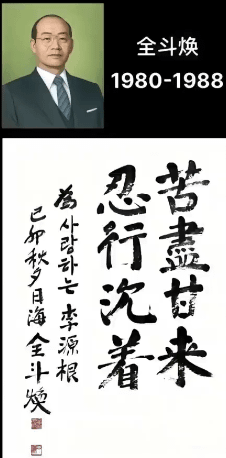 全斗焕
1980-1988
苦盡甘来
忍行沉着
為사랑하는李源根
己卯秋夕日海全斗煥